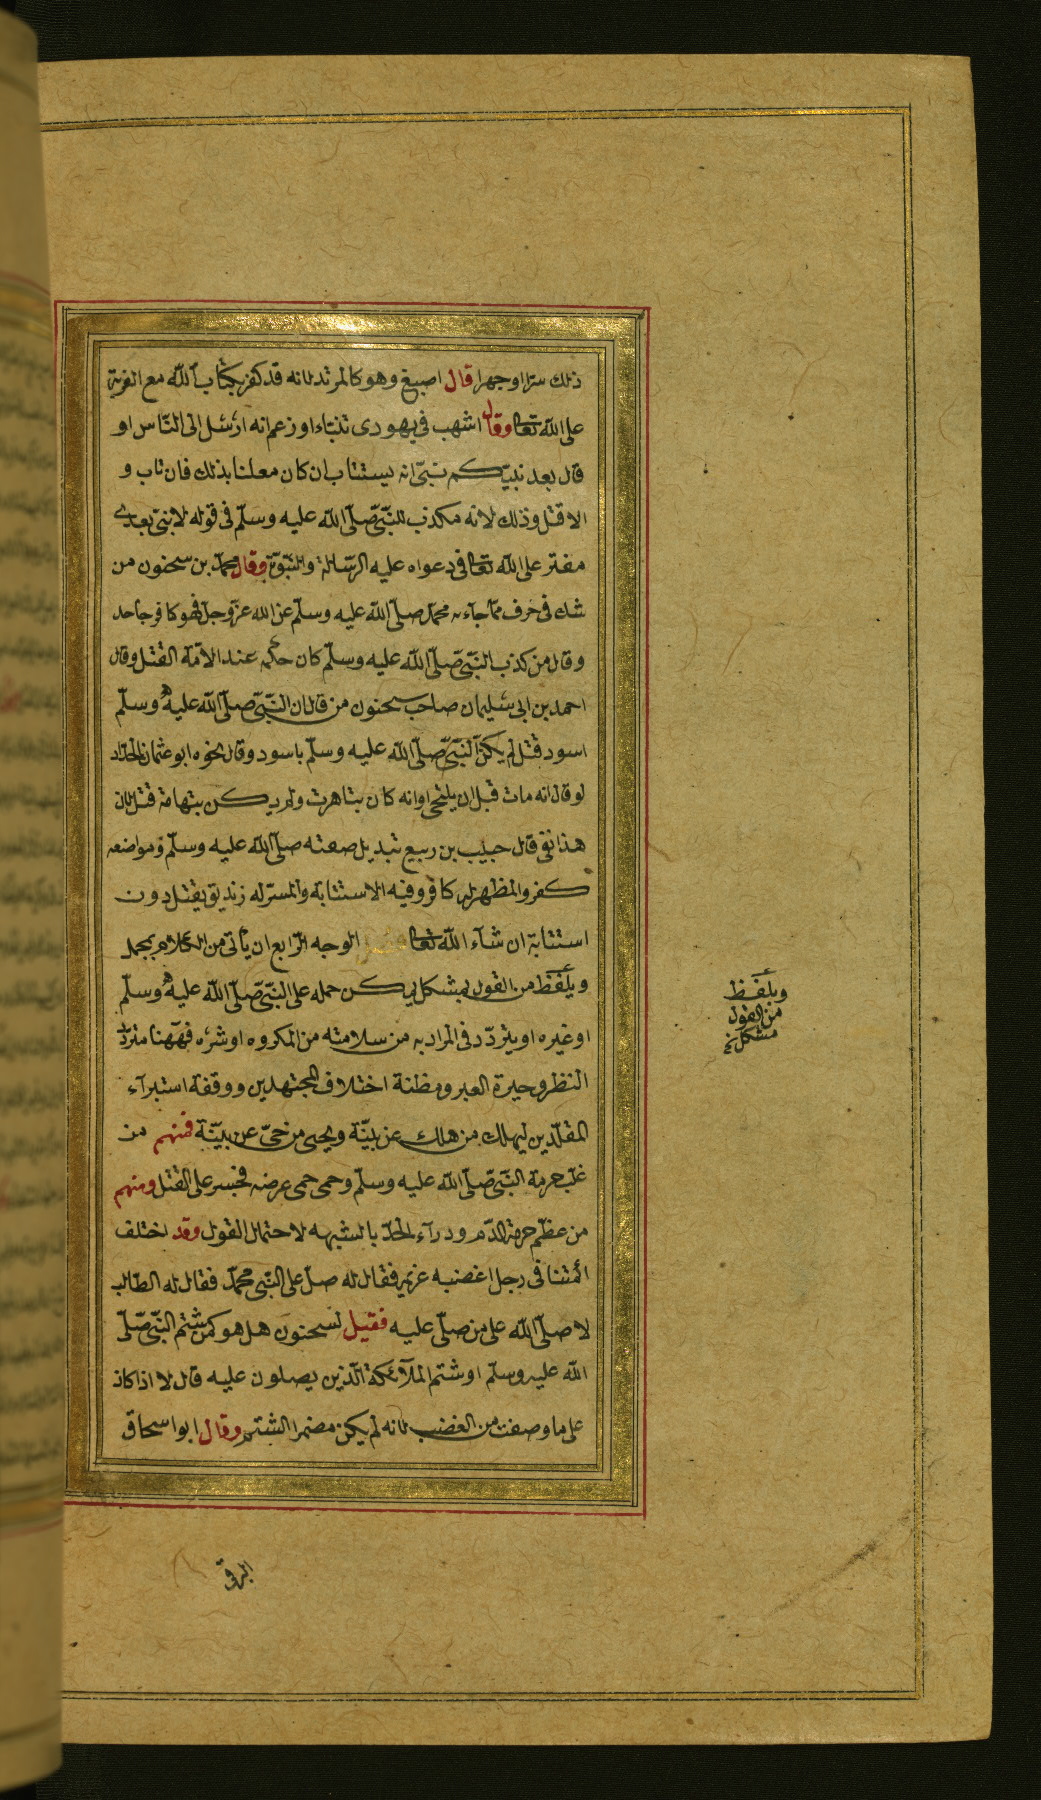 ذلك سرّا او جهرا قال اصبغ وهو كالمرتد لانه قد كفر بكتاب الله مع الفرية
على الله تعالى وقال اشهب فى يهودى تنبّاء او زعم انه ارسل الى النّاس او
قال بعد نبيّكم نبىّ انه يستتاب ان كان معلنا بذلك فان تاب و
الا قتل وذلك لانه مكذب للنّبىّ صلّى الله عليه وسلّم فى قوله لا نبىّ بعدى
مفتر على الله تعالى فى دعواه عليه الرّسالة والنّبوّة وقال محمّد بن سحنون من
شك فى حرف ممّا جاء به محمّد صلّى الله عليه وسلّم عن الله عزّ وجلّ فهو كافر جاحد
وقال من كذب النّبىّ صلّى الله عليه وسلّم كان حكمه عند الامّة القتل وقال
احمد بن ابى سليمان صاحب سحنون من قال ان النّبىّ صلّى الله عليه وسلّم
اسود قتل لم يكن النّبىّ صلّى الله عليه وسلّم باسود وقال نحوه ابو عثمان الحدّاد
لو قال انه مات قبل ان يلتحى او انه كان بتاهرت ولم يكن بتهامة قتل لان
هذا نفى قال حبيب بن ربيع تبديل صفته صلّى الله عليه وسلّم ومواضعه
كفر والمظهر له كافر وفيه الاستتابة والمسرّ له زنديق يقتل دون
استتابة ان شآء الله تعالى فصل الوجه الرّابع ان يأتى من الكلام بمجمل
ويلفظ من القول بمشكل يمكن حمله على النّبىّ صلّى الله عليه وسلّم
او غيره او يتردّد فى المراد به من سلامته من المكروه او شرّه فههنا متردّد
النظر وحيرة العبر ومظنة اختلاف المجتهدين ووقفة استبرآء
المقلّدين ليهلك من هلك عن بيّنة ويحيى من حىّ عن بيّنة فمنهم من
غلب حرمة النّبىّ صلّى الله عليه وسلّم وحمى حمى عرضه فجسر على القتل ومنهم
من عظّم حرمة الدّم ودرآء الحدّ بالشبهه لاحتمال القول وقد اختلف
ائمّتنا فى رجل اغضبه غريمه فقال له صلّ على النّبى محمّد فقال له الطّالب
لا صلّى الله على من صلّى عليه فقيل لسحنون هل هو كمن شتم النّبىّ صلّى
الله عليه وسلّم او شتم الملآئكة الّذين يصلون عليه قال لا اذا كان
على ما وصفت من الغضب لانه لم يكن مضمرا الشتم وقال ابو اسحاق
ويلفظ
من القول
مشكل نخ
البرقى